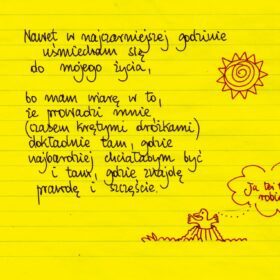 Nawet w najczarniejszej godzinie
uśmiecham się
do mojego życia,
bo mam wiarę w to,
że prowadzi mnie
(czasem krętymi dróżkami)
dokładnie tam, gdzie
najbardziej chciałabym być
i tam, gdzie znajdę
prawdę i szczęście.
Ja też
robię